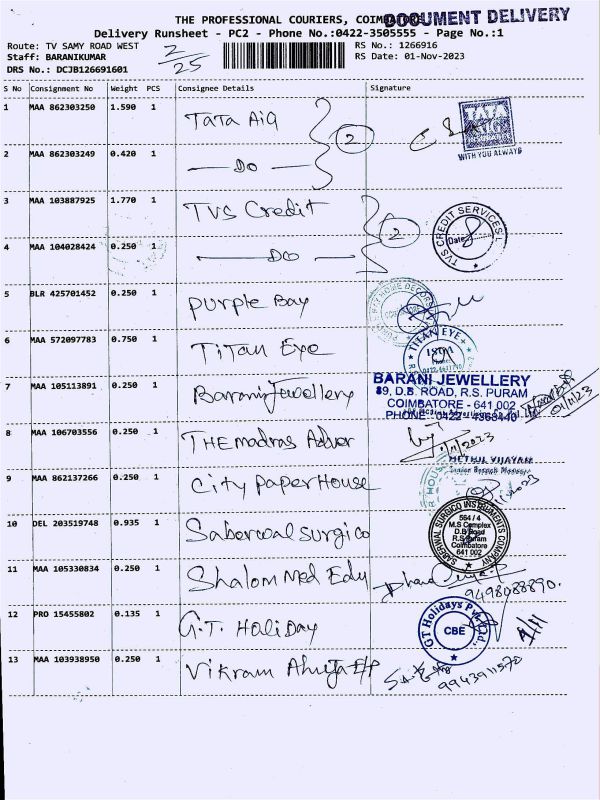 THE PROFESSIONAL COURIERS, COIMBATORE
DOCUMENT DELIVERY
Delivery Runsheet - PC2 - Phone No.:0422-3505555 - Page No.:1
Route: TV SAMY ROAD WEST
RS No.: 1266916
Staff: BARANIKUMAR
RS Date: 01-Nov-2023
DRS No.: DCJB126691601
2/25
S No Consignment No Weight PCS Consignee Details Signature
1 MAA 862303250 1.590 1 TATA AiG
2
TATA AIG
WITH YOU ALWAYS
2 MAA 862303249 0.420 1 — DO —
3 MAA 103887925 1.770 1 TVS Credit
2
TVS CREDIT SERVICES L
Date
4 MAA 104028424 0.250 1 — DO —
5 BLR 425701452 0.250 1 purple Bay
HOME DECORS
6 MAA 572097783 0.750 1 TiTan Eye
TITAN EYE+
7 MAA 105113891 0.250 1 Barani Jewellery
BARANI JEWELLERY
89, D.B. ROAD, R.S. PURAM
COIMBATORE - 641 002
PHONE: 0422 - 4368440
8 MAA 106703556 0.250 1 THE madras Adver
1/11/2023
Junior Branch Manager
9 MAA 862137266 0.250 1 City paper House
10 DEL 203519748 0.935 1 Saberwal surgico
SABERWAL SURGICO INSTRUMENTS COMPANY
564 / 4
M.S Complex
D.B Road
R.S Puram
Coimbatore
641 002
11 MAA 105330834 0.250 1 Shalom Med Edu
9498088890.
12 PRO 15455802 0.135 1 G.T. HoliDay
GT Holidays Pvt. Ltd.,
CBE
1/11
13 MAA 103938950 0.250 1 Vikram Ahuja F/P
9943911570